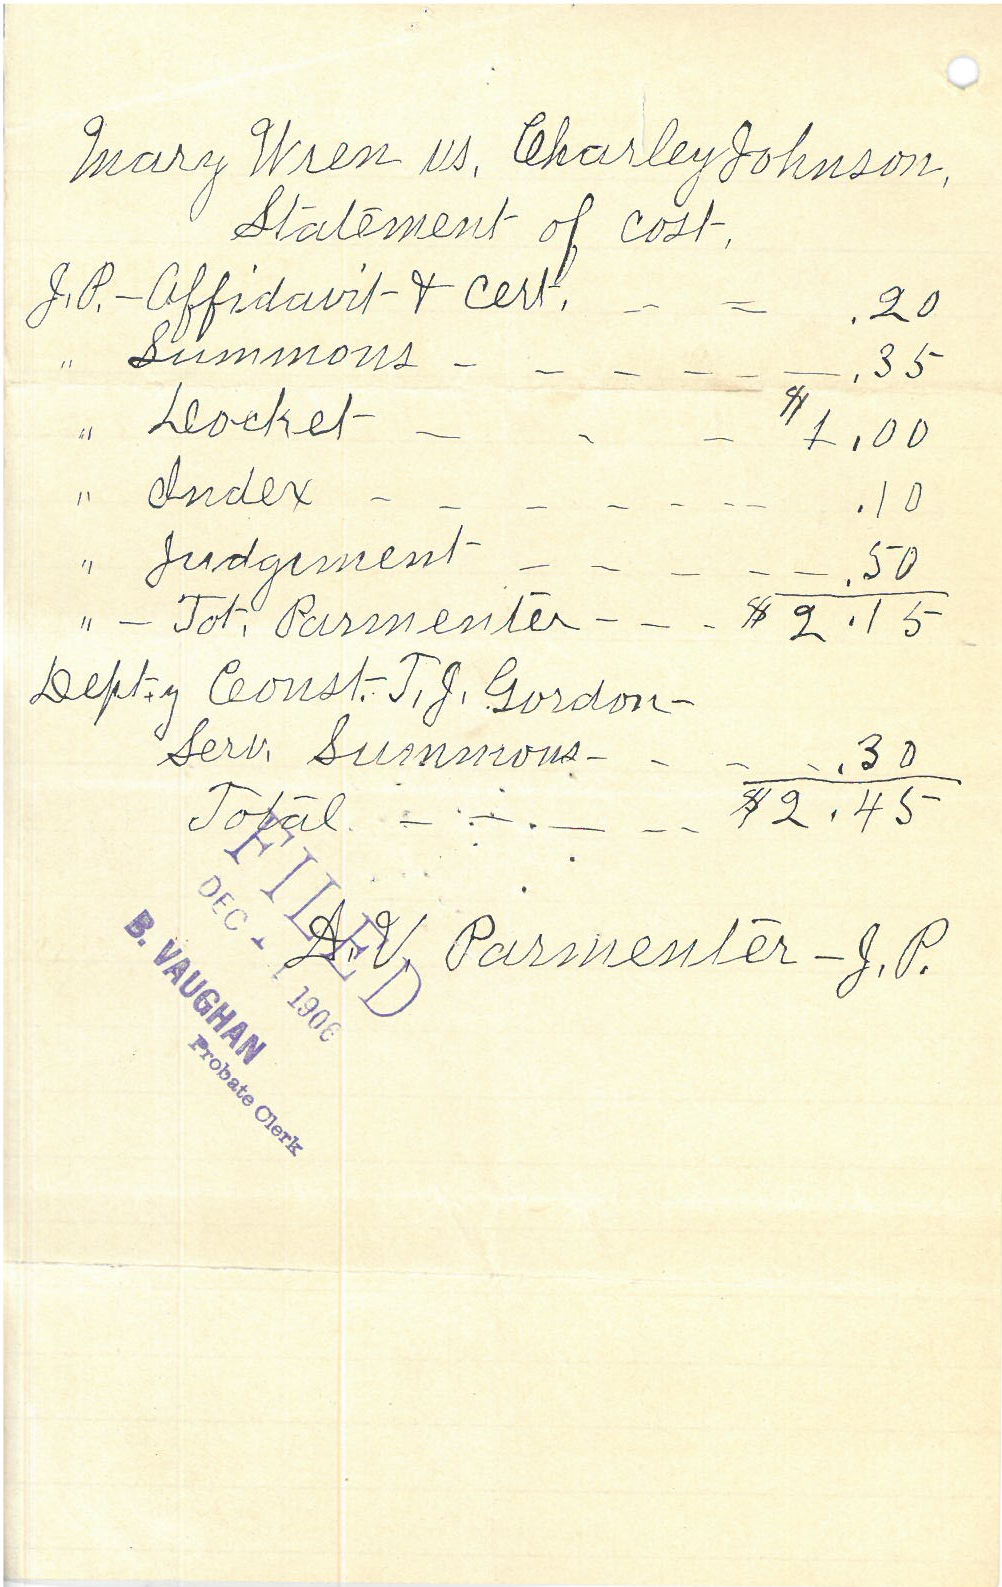 Mary Wren vs. Charley Johnson,
Statement of cost,
J.P. - Affidavit & cert. - - .20
" Summons - - - - - - - .35
" Docket - - - $1.00
" Index - - - - - - - .10
" Judgement - - - - - - - .50
" - Tot. Parmenter - - - $2.15
Dept.y Const. T.J. Gordon -
Serv. Summons - - - - .30
Total - - - - - - $2.45
A.V. Parmenter - J.P.
FILED
DEC 1906
B. VAUGHAN
Probate Clerk